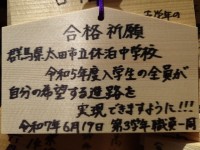 合格祈願
群馬県太田市立休泊中学校
令和5年度入学生の全員が
自分の希望する進路を
実現できますように!!!
令和7年6月17日 第3学年職員一同